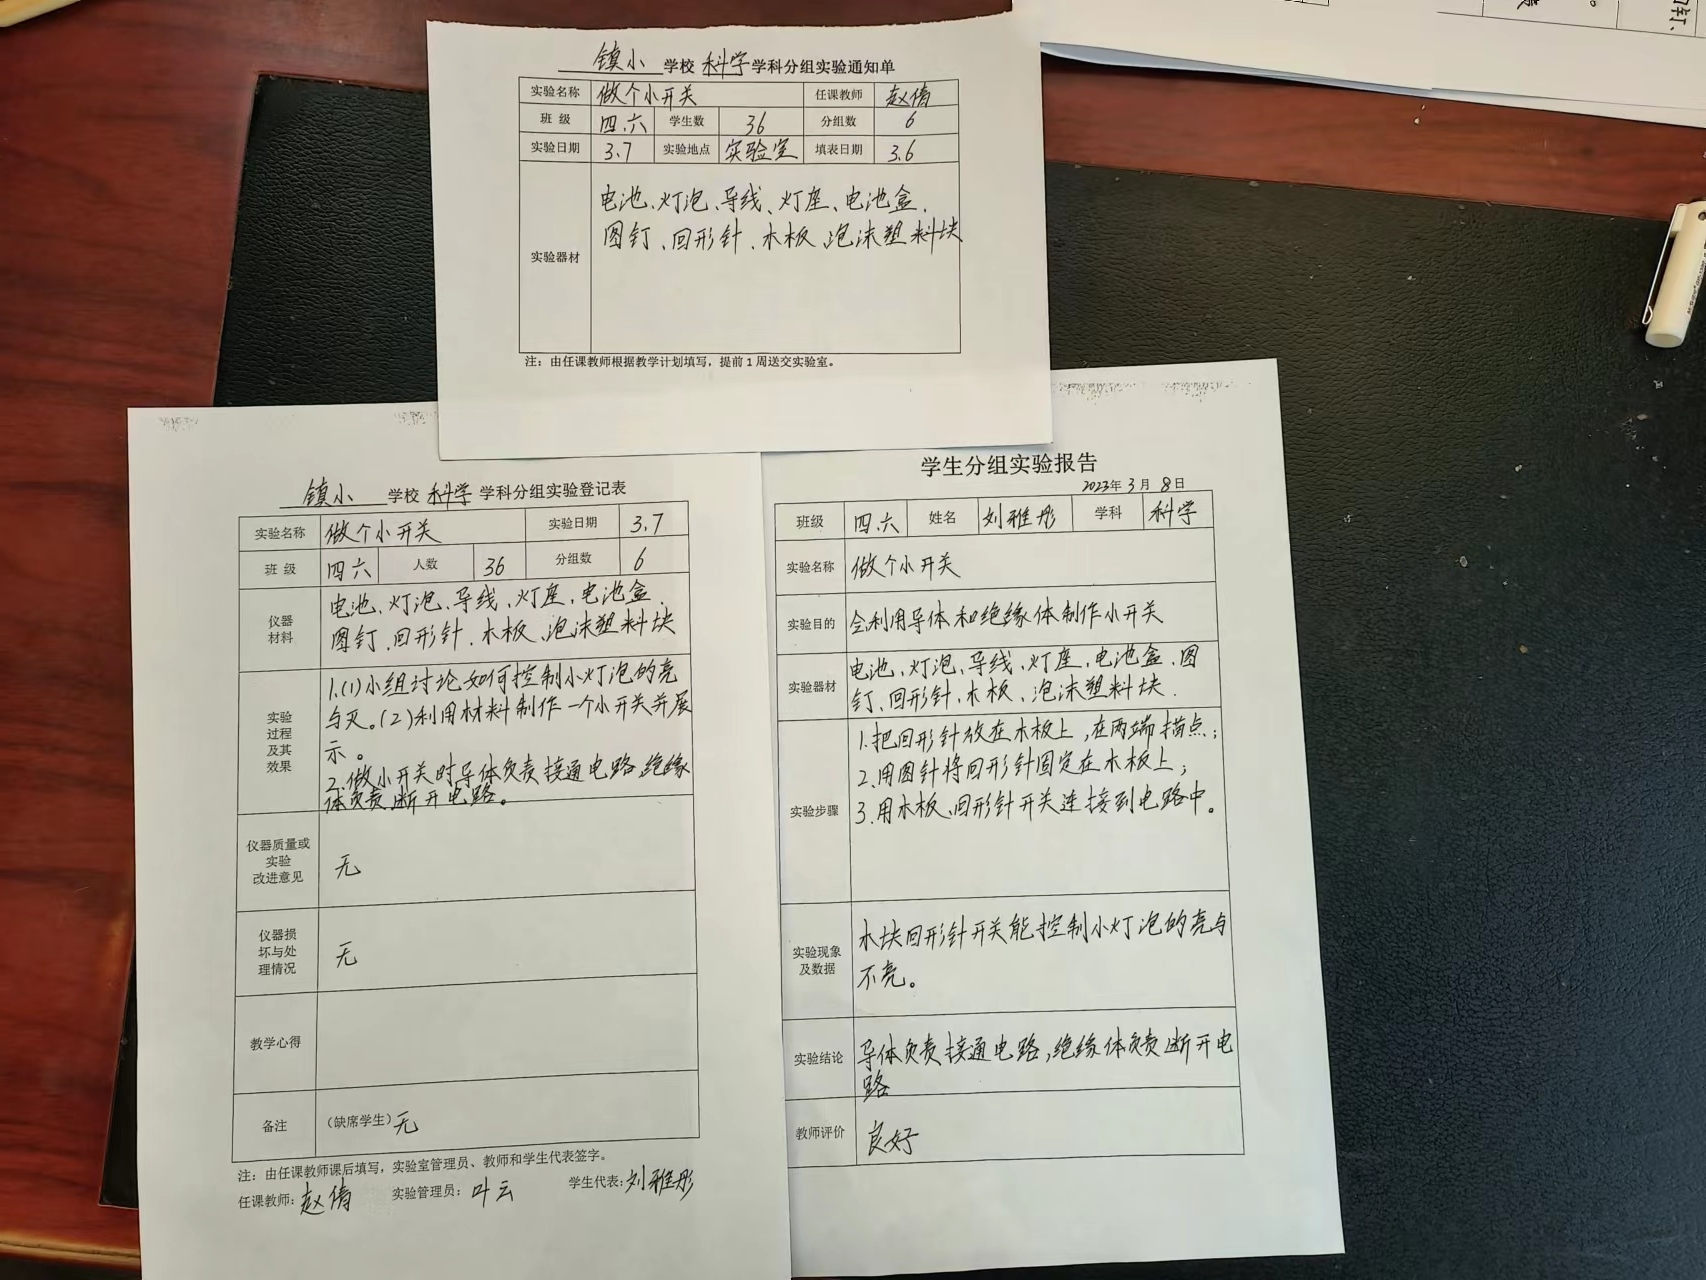 镇小 学校 科学 学科分组实验通知单
实验名称 做个小开关 任课教师 赵倩
班 级 四.六 学生数 36 分组数 6
实验日期 3.7 实验地点 实验室 填表日期 3.6
实验器材
电池、灯泡、导线、灯座、电池盒、
图钉、回形针、木板、泡沫塑料块
注：由任课教师根据教学计划填写，提前 1 周送交实验室。
镇小 学校 科学 学科分组实验登记表
实验名称 做个小开关 实验日期 3.7
班 级 四六 人数 36 分组数 6
仪器
材料
电池、灯泡、导线、灯座、电池盒、
图钉、回形针、木板、泡沫塑料块
实验
过程
及其
效果
1.(1)小组讨论如何控制小灯泡的亮
与灭。(2)利用材料制作一个小开关并展
示。
2.做小开关时导体负责接通电路,绝缘
体负责断开电路。
仪器质量或
实验
改进意见
无
仪器损
坏与处
理情况
无
教学心得
备注 （缺席学生）无
注：由任课教师课后填写，实验室管理员、教师和学生代表签字。
任课教师：赵倩 实验管理员：叶云 学生代表：刘雅彤
学生分组实验报告
2023年 3 月 8 日
班级 四.六 姓名 刘雅彤 学科 科学
实验名称 做个小开关
实验目的 会利用导体和绝缘体制作小开关
实验器材
电池、灯泡、导线、灯座、电池盒、图
钉、回形针、木板、泡沫塑料块.
实验步骤
1.把回形针放在木板上,在两端描点;
2.用图针将回形针固定在木板上;
3.用木板、回形针开关连接到电路中。
实验现象
及数据
木块回形针开关能控制小灯泡的亮与
不亮。
实验结论
导体负责接通电路,绝缘体负责断开电
路
教师评价 良好